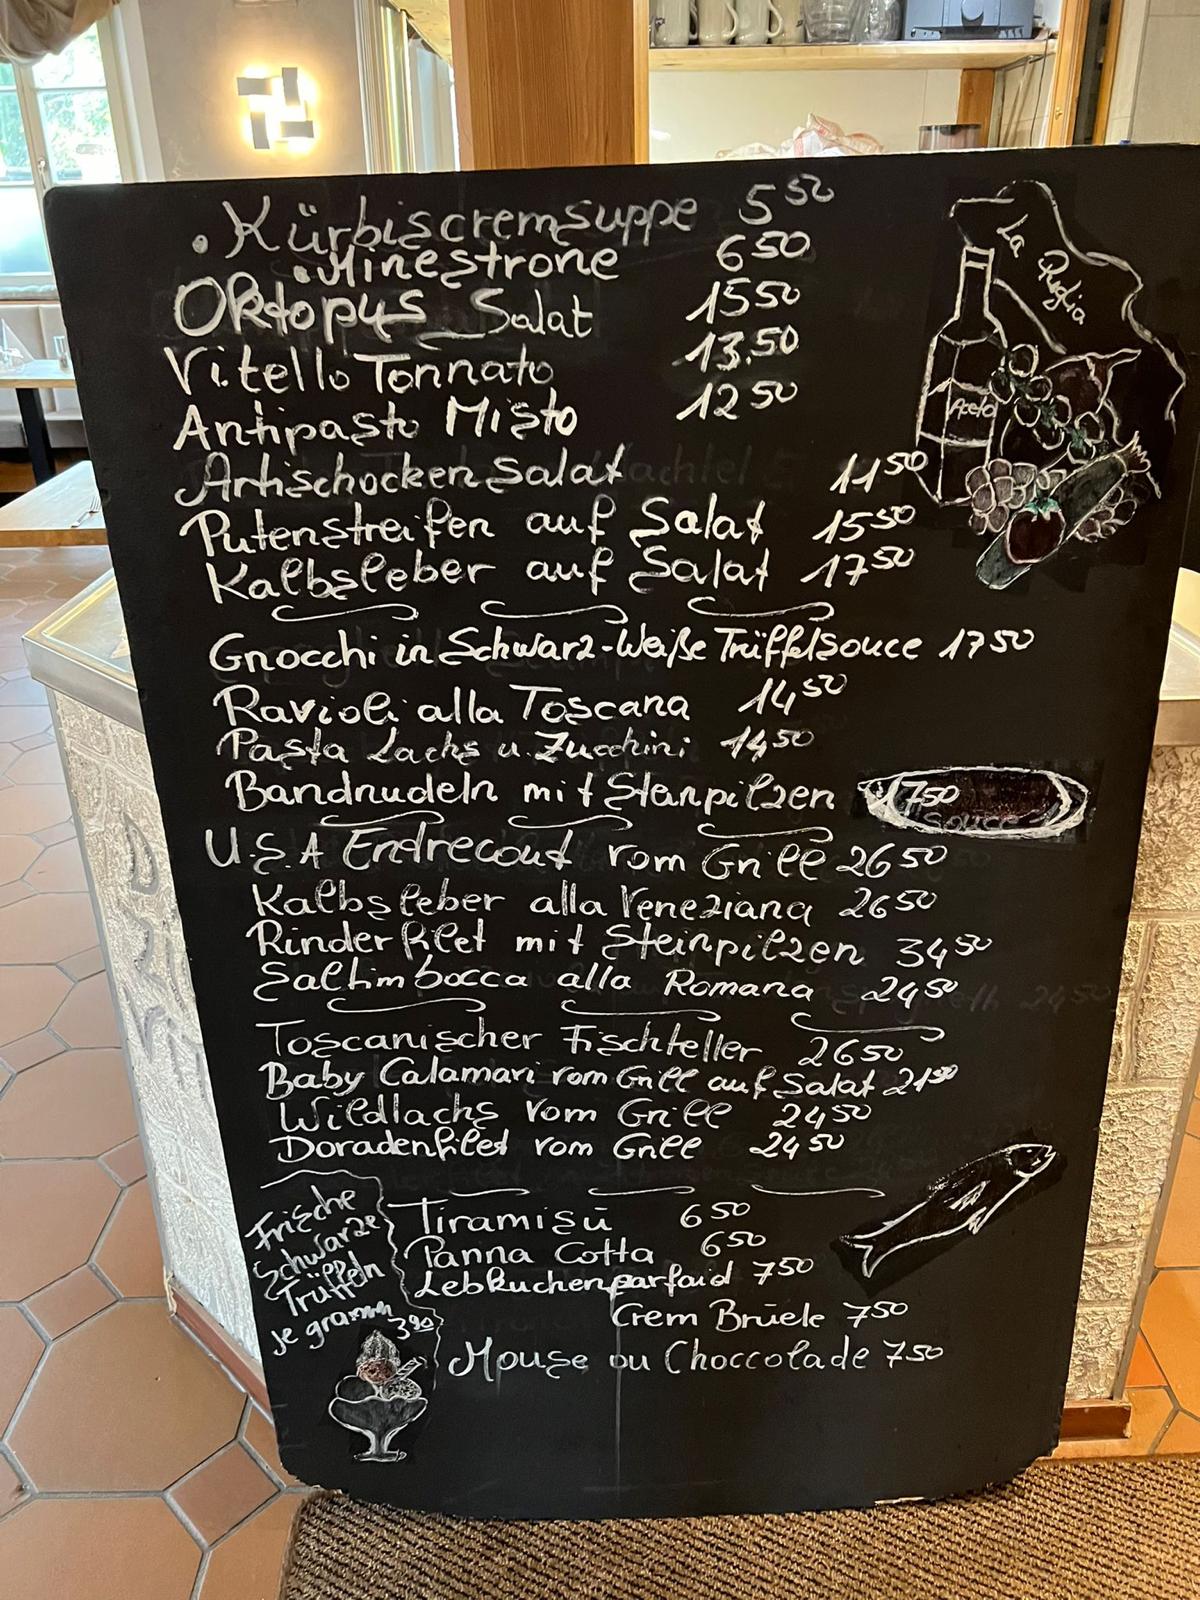 La Reglia
Aceto
• Kürbiscremsuppe 5 50
• Minestrone 6 50
Oktopus Salat 15 50
Vitello Tonnato 13,50
Antipasto Misto 12 50
Artischocken Salat 11 50
Putenstreifen auf Salat 15 50
Kalbsleber auf Salat 17 50
Gnocchi in Schwarz-Weiße Trüffelsouce 17 50
Ravioli alla Toscana 14 50
Pasta Lachs u. Zucchini 14 50
Bandnudeln mit Steinpilzen 750
souce
U.S.A Endrecout vom Grill 26 50
Kalbsleber alla Veneziana 26 50
Rinderfilet mit Steinpilzen 34 50
Saltimbocca alla Romana 24 50
Toscanischer Fischteller 26 50
Baby Calamari vom Grill auf Salat 21 50
Wildlachs vom Grill 24 50
Doradenfilet vom Grill 24 50
Frische
Schwarze
Trüffeln
je gramm
3 90
Tiramisu 6 50
Panna Cotta 6 50
Lebkuchenparfaid 7 50
Crem Brüele 7 50
Mouse ou Choccolade 7 50